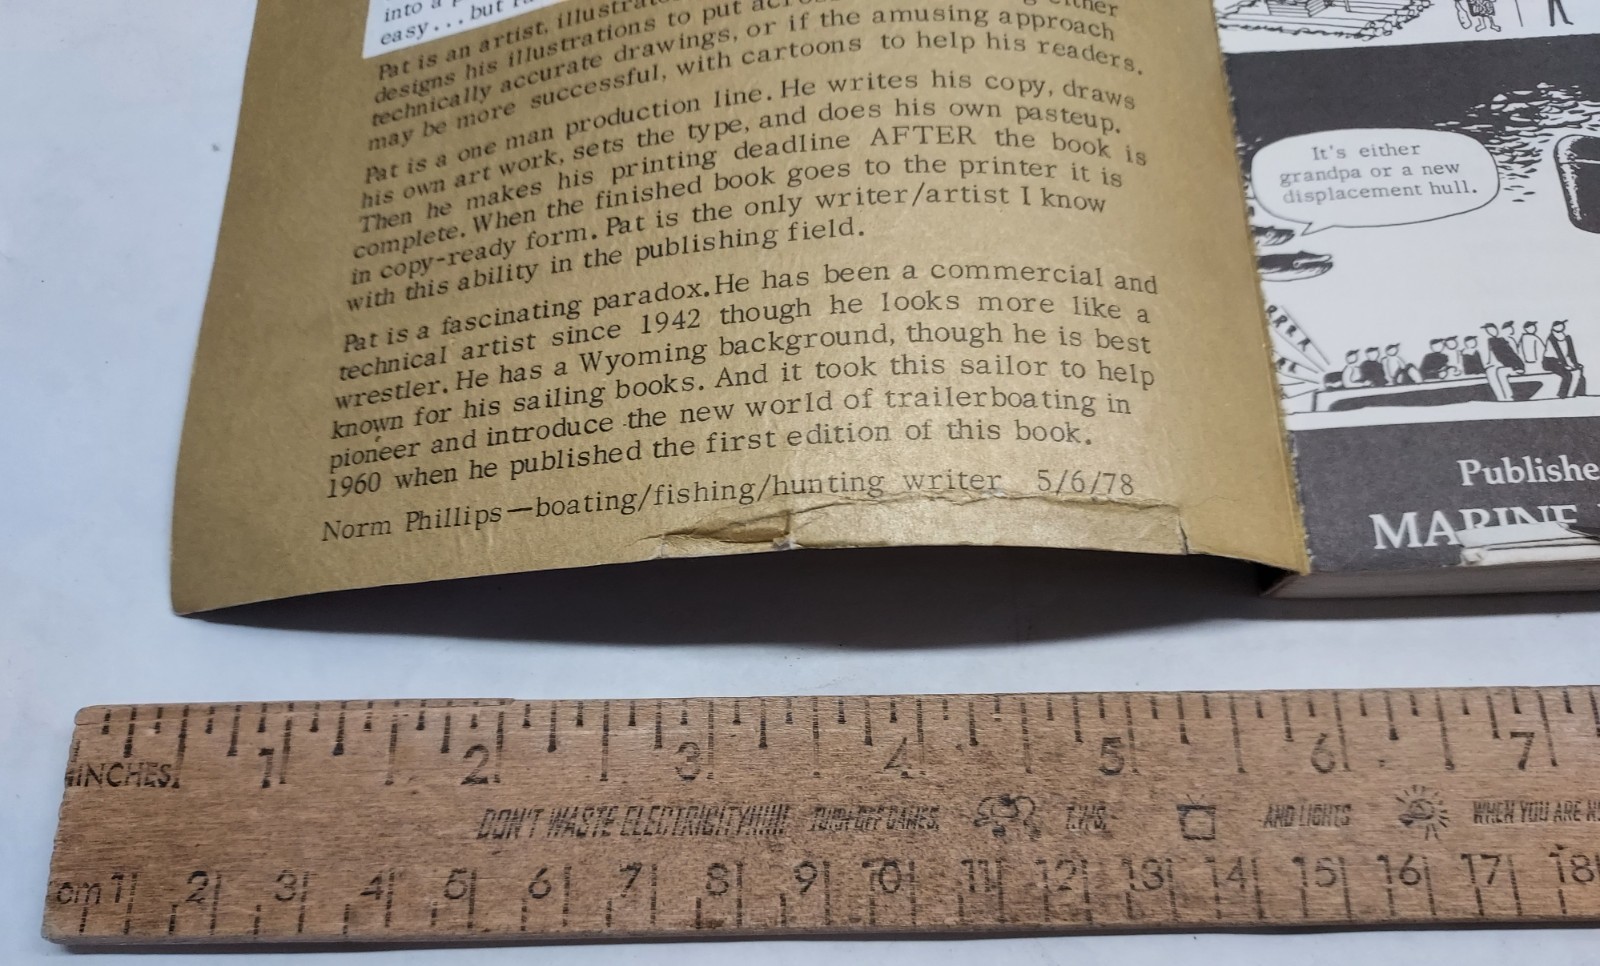 into a
easy...but
Pat is an artist, illustra
designs his illustrations to put
technically accurate drawings, or if the amusing approach
may be more successful, with cartoons to help his readers.
Pat is a one man production line. He writes his copy, draws
his own art work, sets the type, and does his own pasteup.
Then he makes his printing deadline AFTER the book is
complete. When the finished book goes to the printer it is
in copy-ready form. Pat is the only writer/artist I know
with this ability in the publishing field.
Pat is a fascinating paradox. He has been a commercial and
technical artist since 1942 though he looks more like a
wrestler. He has a Wyoming background, though he is best
known for his sailing books. And it took this sailor to help
pioneer and introduce the new world of trailerboating in
1960 when he published the first edition of this book.
Norm Phillips—boating/fishing/hunting writer 5/6/78
It's either
grandpa or a new
displacement hull.
Publishe
MARINE
INCHES 1 2 3 4 5 6 7
DON'T WASTE ELECTRICITY!!!!! AND LIGHTS WHEN YOU ARE
cm 1 2 3 4 5 6 7 8 9 10 11 12 13 14 15 16 17 18